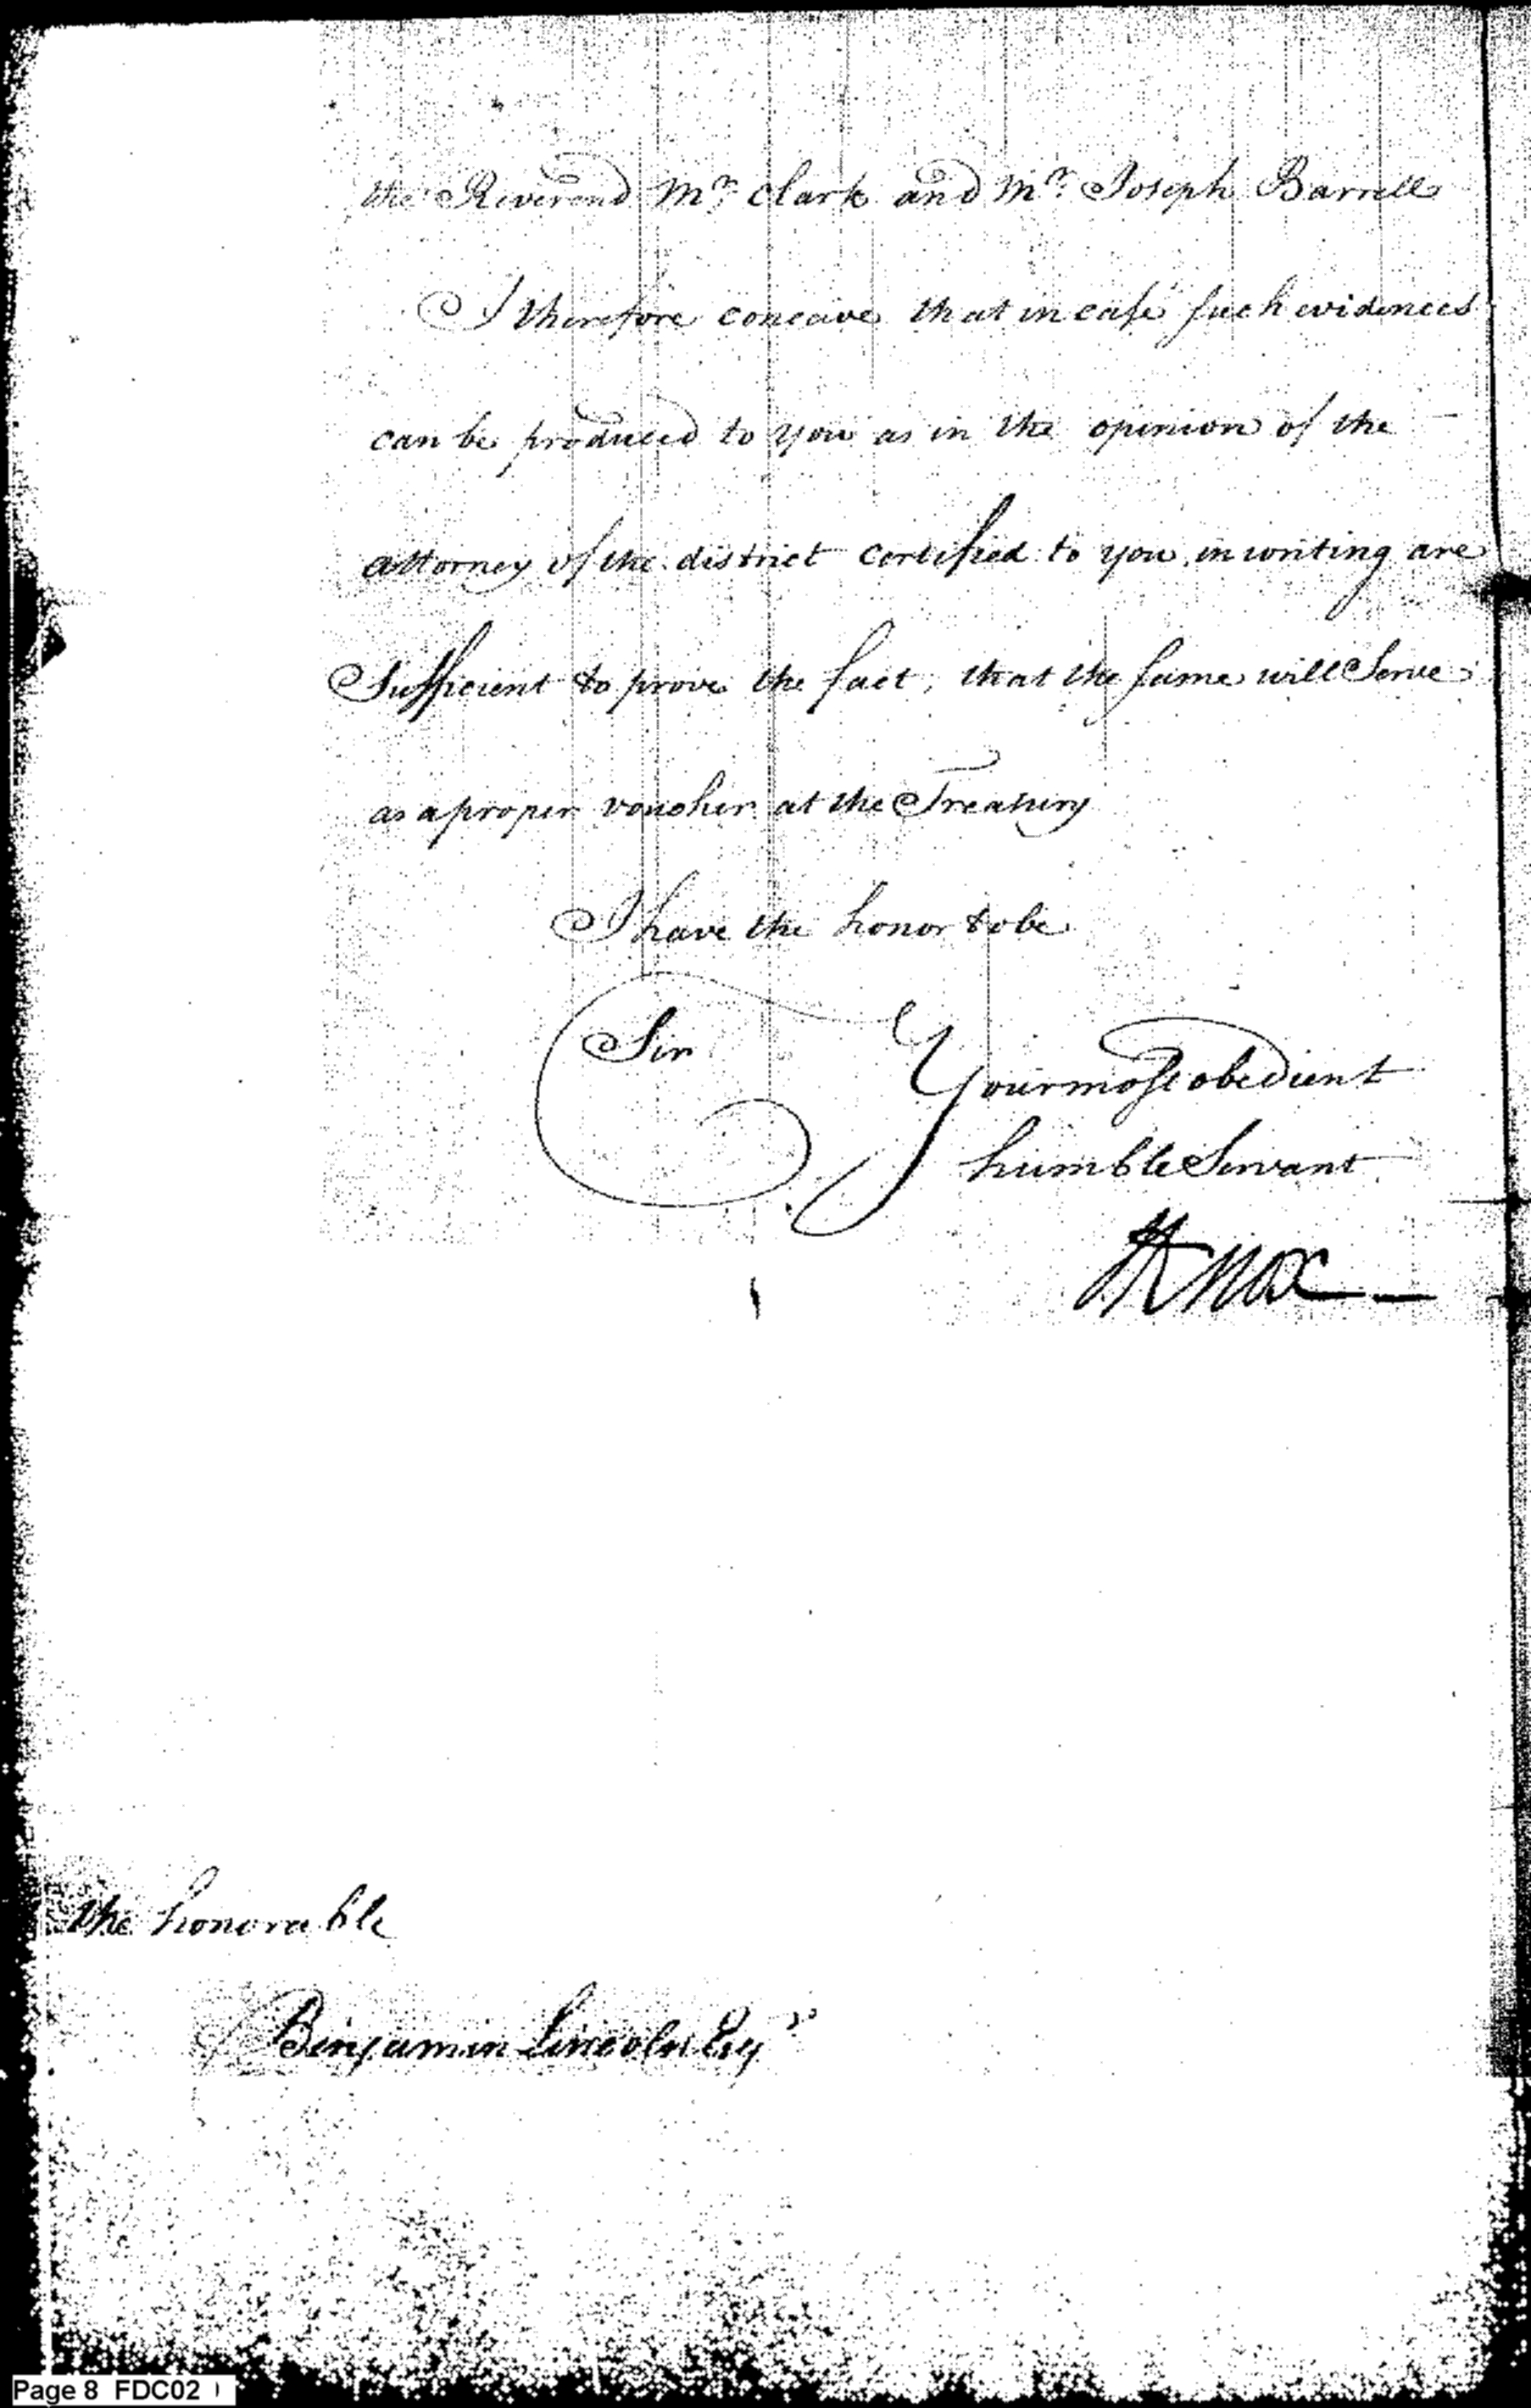 the Reverend Mr. Clark and Mr. Joseph Barrell
I therefore conceive that in case such evidences
can be produced to you as in the opinion of the
attorney of the district certified to you in writing are
Sufficient to prove the fact, that the same will Serve
as a proper voucher at the Treasury
I have the honor to be
Sir
Your most obedient
humble Servant
HKnox
the honorable
Benjamin Lincoln Esqr
Page 8 FDC02